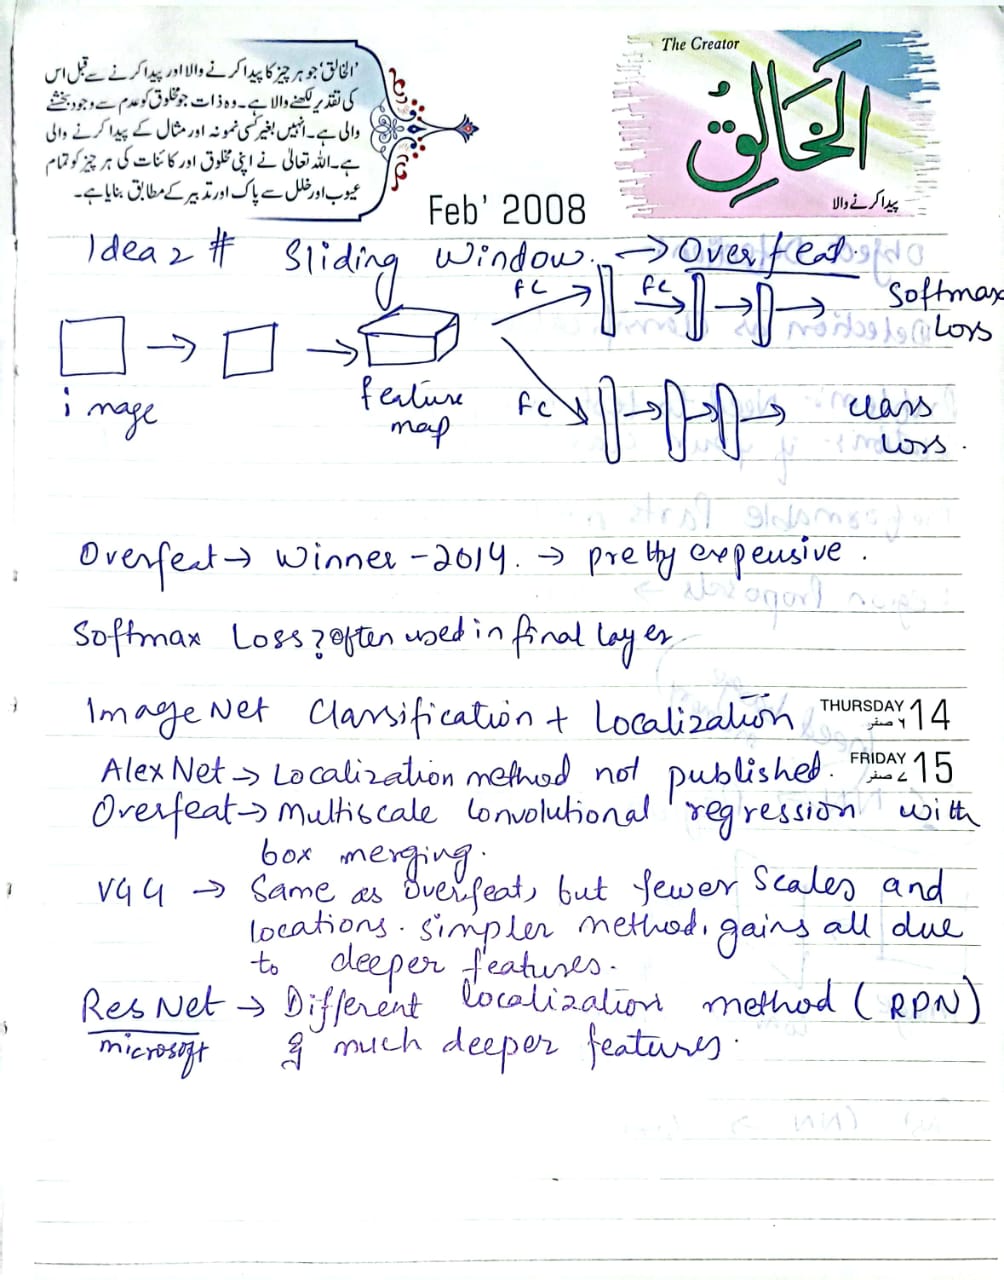 'الخالق' جو ہر چیز کا پیدا کرنے والا اور پیدا کرنے سے قبل اس
کی تقدیر لکھنے والا ہے۔ وہ ذات جو مخلوق کو عدم سے وجود بخشنے
والی ہے۔ انہیں بغیر کسی نمونہ اور مثال کے پیدا کرنے والی
ہے۔ اللہ تعالیٰ نے اپنی مخلوق اور کائنات کی ہر چیز کو تمام
عیوب اور خلل سے پاک اور تدبیر کے مطابق بنایا ہے۔
The Creator
الخَالِقُ
پیدا کرنے والا
Feb' 2008
Idea 2 # Sliding Window. → Overfeat.
fc fc Softmax
Loss
image
feature
map
fc class
loss.
Overfeat → Winner - 2014. → pretty expensive.
Softmax Loss? often used in final layer
ImageNet Classification + Localization
THURSDAY 14
۶ صفر
AlexNet → Localization method not published.
FRIDAY 15
۷ صفر
Overfeat → Multiscale Convolutional regression with
box merging.
VGG → Same as Overfeat, but fewer Scales and
locations. simpler method, gains all due
to deeper features.
ResNet → Different localization method (RPN)
microsoft & much deeper features.